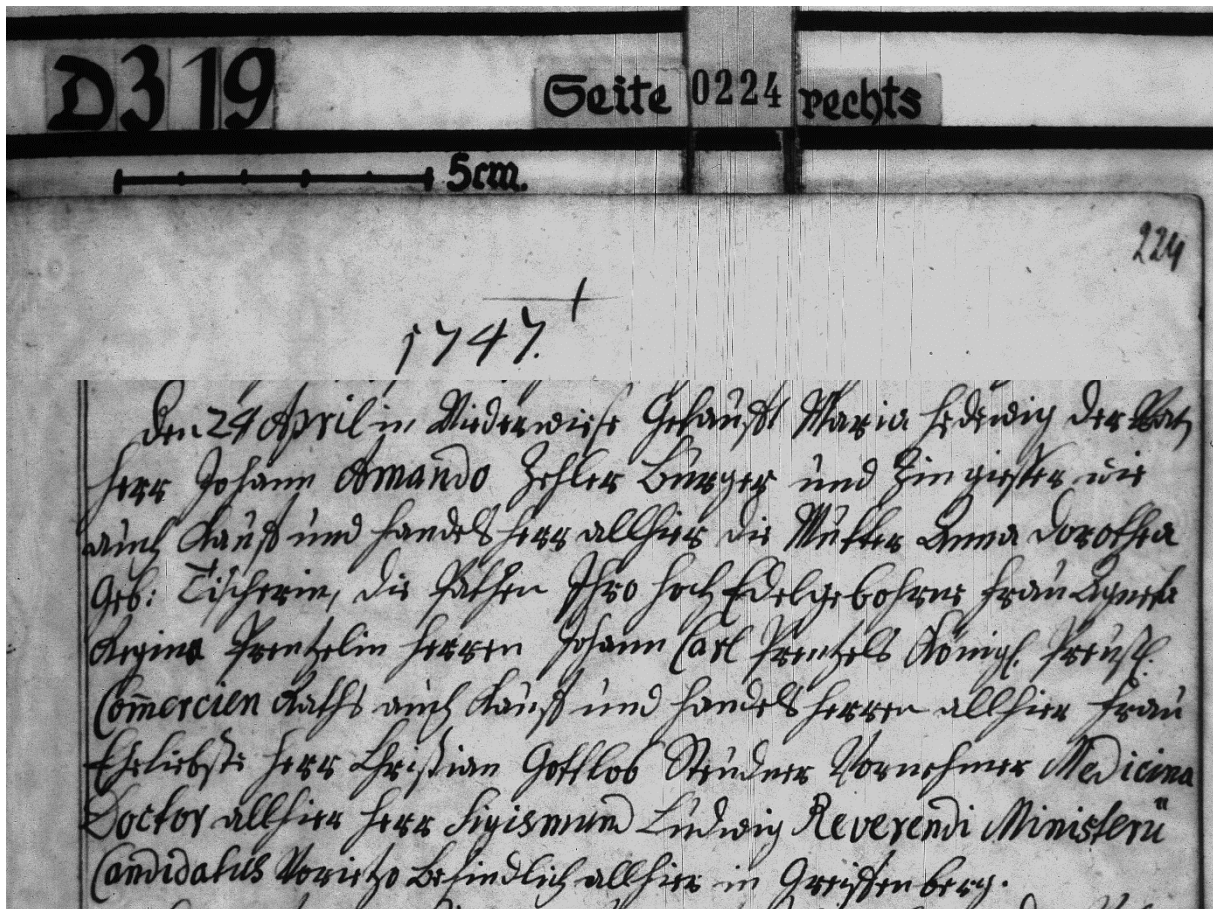 D319 Seite 0224 rechts
5cm.
224
1747.
Den 24 April in Niederwiese Getaufft Maria Hedewig der Vat,
Herr Johann Amando Zehler Bürger und Zingiesser wie
auch Kauff und Handels Herr allhier die Mutter Anna Dorothea
Geb: Tischerin, die Pathen Ihro Hoch Edelgebohrne Frau Agneta
Regina Prentzelin Herren Johann Carl Prentzels Königl. Preusl.
Com̅ercien Raths auch Kauff und Handels Herren allhier Frau
Eheliebste Herr Christian Gottlob Steudner Vornehmer Medicina
Doctor allhier Herr Sigismund Ludwig Reverendi Ministerii
Candidatus Vorietzo Befindlich allhier in Greiffenberg.